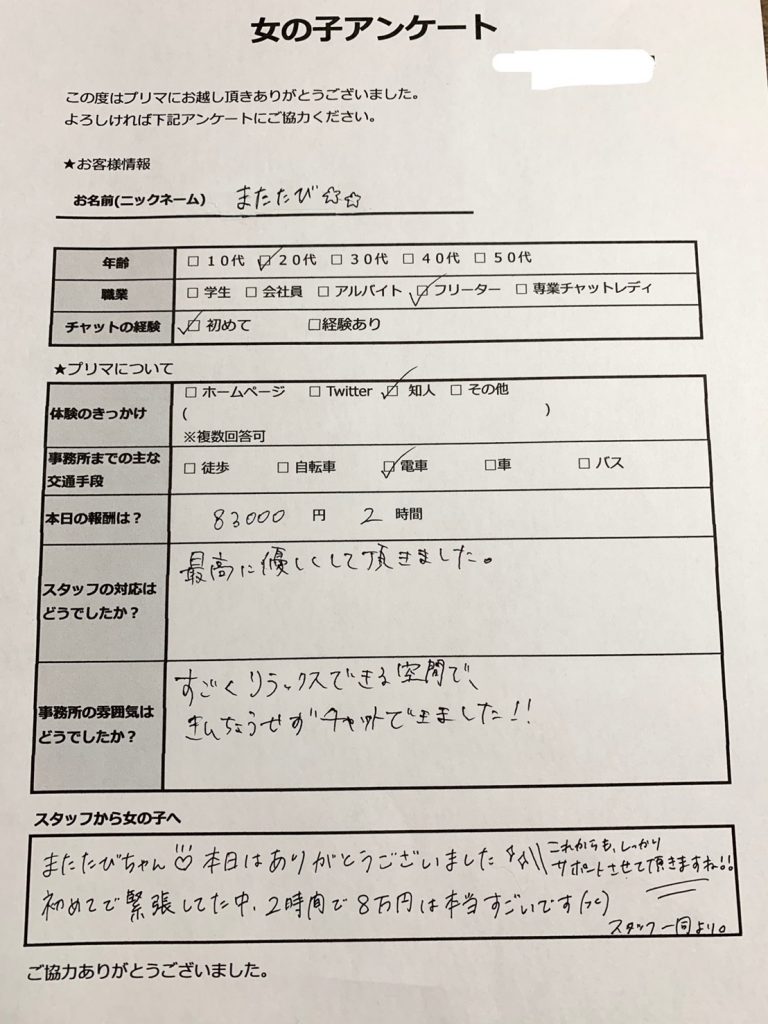 女の子アンケート
この度はプリマにお越し頂きありがとうございました。
よろしければ下記アンケートにご協力ください。
★お客様情報
お名前(ニックネーム) またたび☆☆
年齢 □ 10代 ☑ 20代 □ 30代 □ 40代 □ 50代
職業 □ 学生 □ 会社員 □ アルバイト ☑ フリーター □ 専業チャットレディ
チャットの経験 ☑ 初めて □経験あり
★プリマについて
体験のきっかけ □ ホームページ □ Twitter ☑ 知人 □ その他
( )
※複数回答可
事務所までの主な交通手段 □ 徒歩 □ 自転車 ☑ 電車 □車 □ バス
本日の報酬は? 83000 円 2 時間
スタッフの対応は
どうでしたか?
最高に優しくして頂きました。
事務所の雰囲気は
どうでしたか?
すごくリラックスできる空間で、
きんちょうせずチャットできました!!
スタッフから女の子へ
またたびちゃん 本日はありがとうございました ☆☆\\ これからも、しっかり
サポートさせて頂きますね!!
初めてで緊張してた中、2時間で8万円は本当すごいです
スタッフ一同より。
ご協力ありがとうございました。